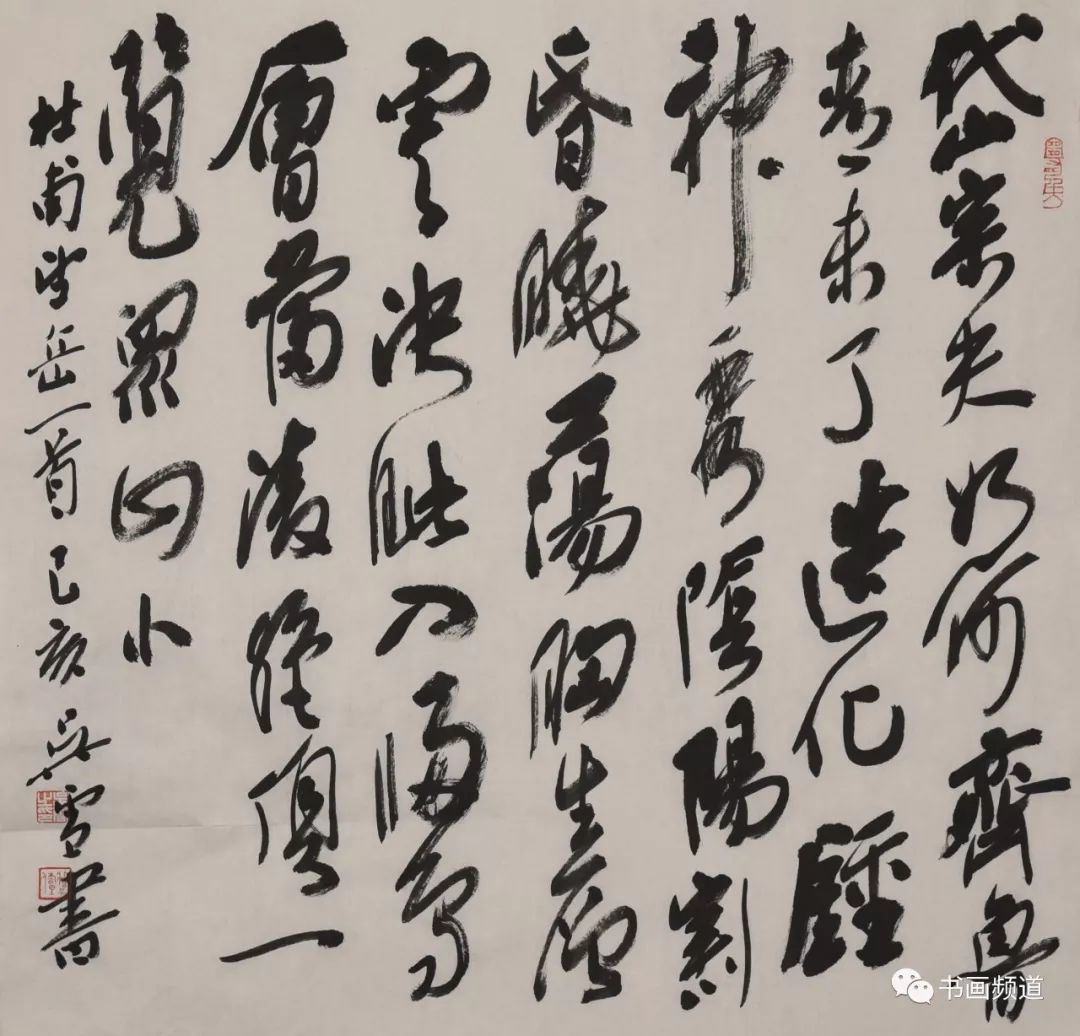 岱宗夫如何齊魯
青未了造化鍾
神秀陰陽割
昏曉蕩胸生層
雲決眥入歸鳥
會當凌絕頂一
覽眾山小
杜甫望岳一首己亥吳雪書
书画频道